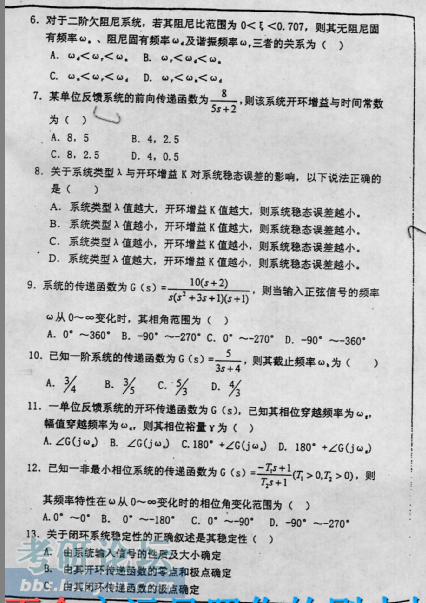 6. 对于二阶欠阻尼系统，若其阻尼比范围为 0<ξ<0.707，则其无阻尼固
有频率ωn、阻尼固有频率ωd及谐振频率ωr三者的关系为（ ）
7. 某单位反馈系统的前向传递函数为 8/(5s+2)，则该系统开环增益与时间常数
为（ ）
A. 8，5 B. 4，2.5
C. 8，2.5 D. 4，0.5
8. 关于系统类型λ与开环增益 K 对系统稳态误差的影响，以下说法正确的
是（ ）
A. 系统类型λ值越大，开环增益 K 值越大，则系统稳态误差越小。
B. 系统类型λ值越小，开环增益 K 值越大，则系统稳态误差越小。
C. 系统类型λ值越小，开环增益 K 值越小，则系统稳态误差越小。
D. 系统类型λ值越大，开环增益 K 值越小，则系统稳态误差越小。
9. 系统的传递函数为 G（s）= 10(s+2)/(s(s²+3s+1)(s+1))，则当输入正弦信号的频率
ω从 0～∞变化时，其相角范围为（ ）
A. 0° ～360° B. -90° ～-270° C. 0° ～-270° D. -90° ～-360°
10. 已知一阶系统的传递函数为 G（s）= 5/(3s+4)，则其截止频率ωb为（ ）
A. 3/4 B. 3/5 C. 5/3 D. 4/3
11. 一单位反馈系统的开环传递函数为 G（s），已知其相位穿越频率为ωg，
幅值穿越频率为ωc，则其相位裕量γ为（ ）
A. ∠G(jωg) B. ∠G(jωc) C. 180° +∠G(jωg) D. 180° +∠G(jωc)
12. 已知一非最小相位系统的传递函数为 G（s）= (-T₁s+1)/(T₂s+1) (T₁>0,T₂>0)，则
其频率特性在ω从 0～∞变化时的相位角变化范围为（ ）
A. 0° ～0° B. 0° ～-180° C. 0° ～-90° D. -90° ～-270°
13. 关于闭环系统稳定性的正确叙述是其稳定性（ ）
A. 由系统输入信号的性质及大小确定
B. 由其开环传递函数的零点和极点确定
C. 由其闭环传递函数的极点确定
考研论坛
bbs.